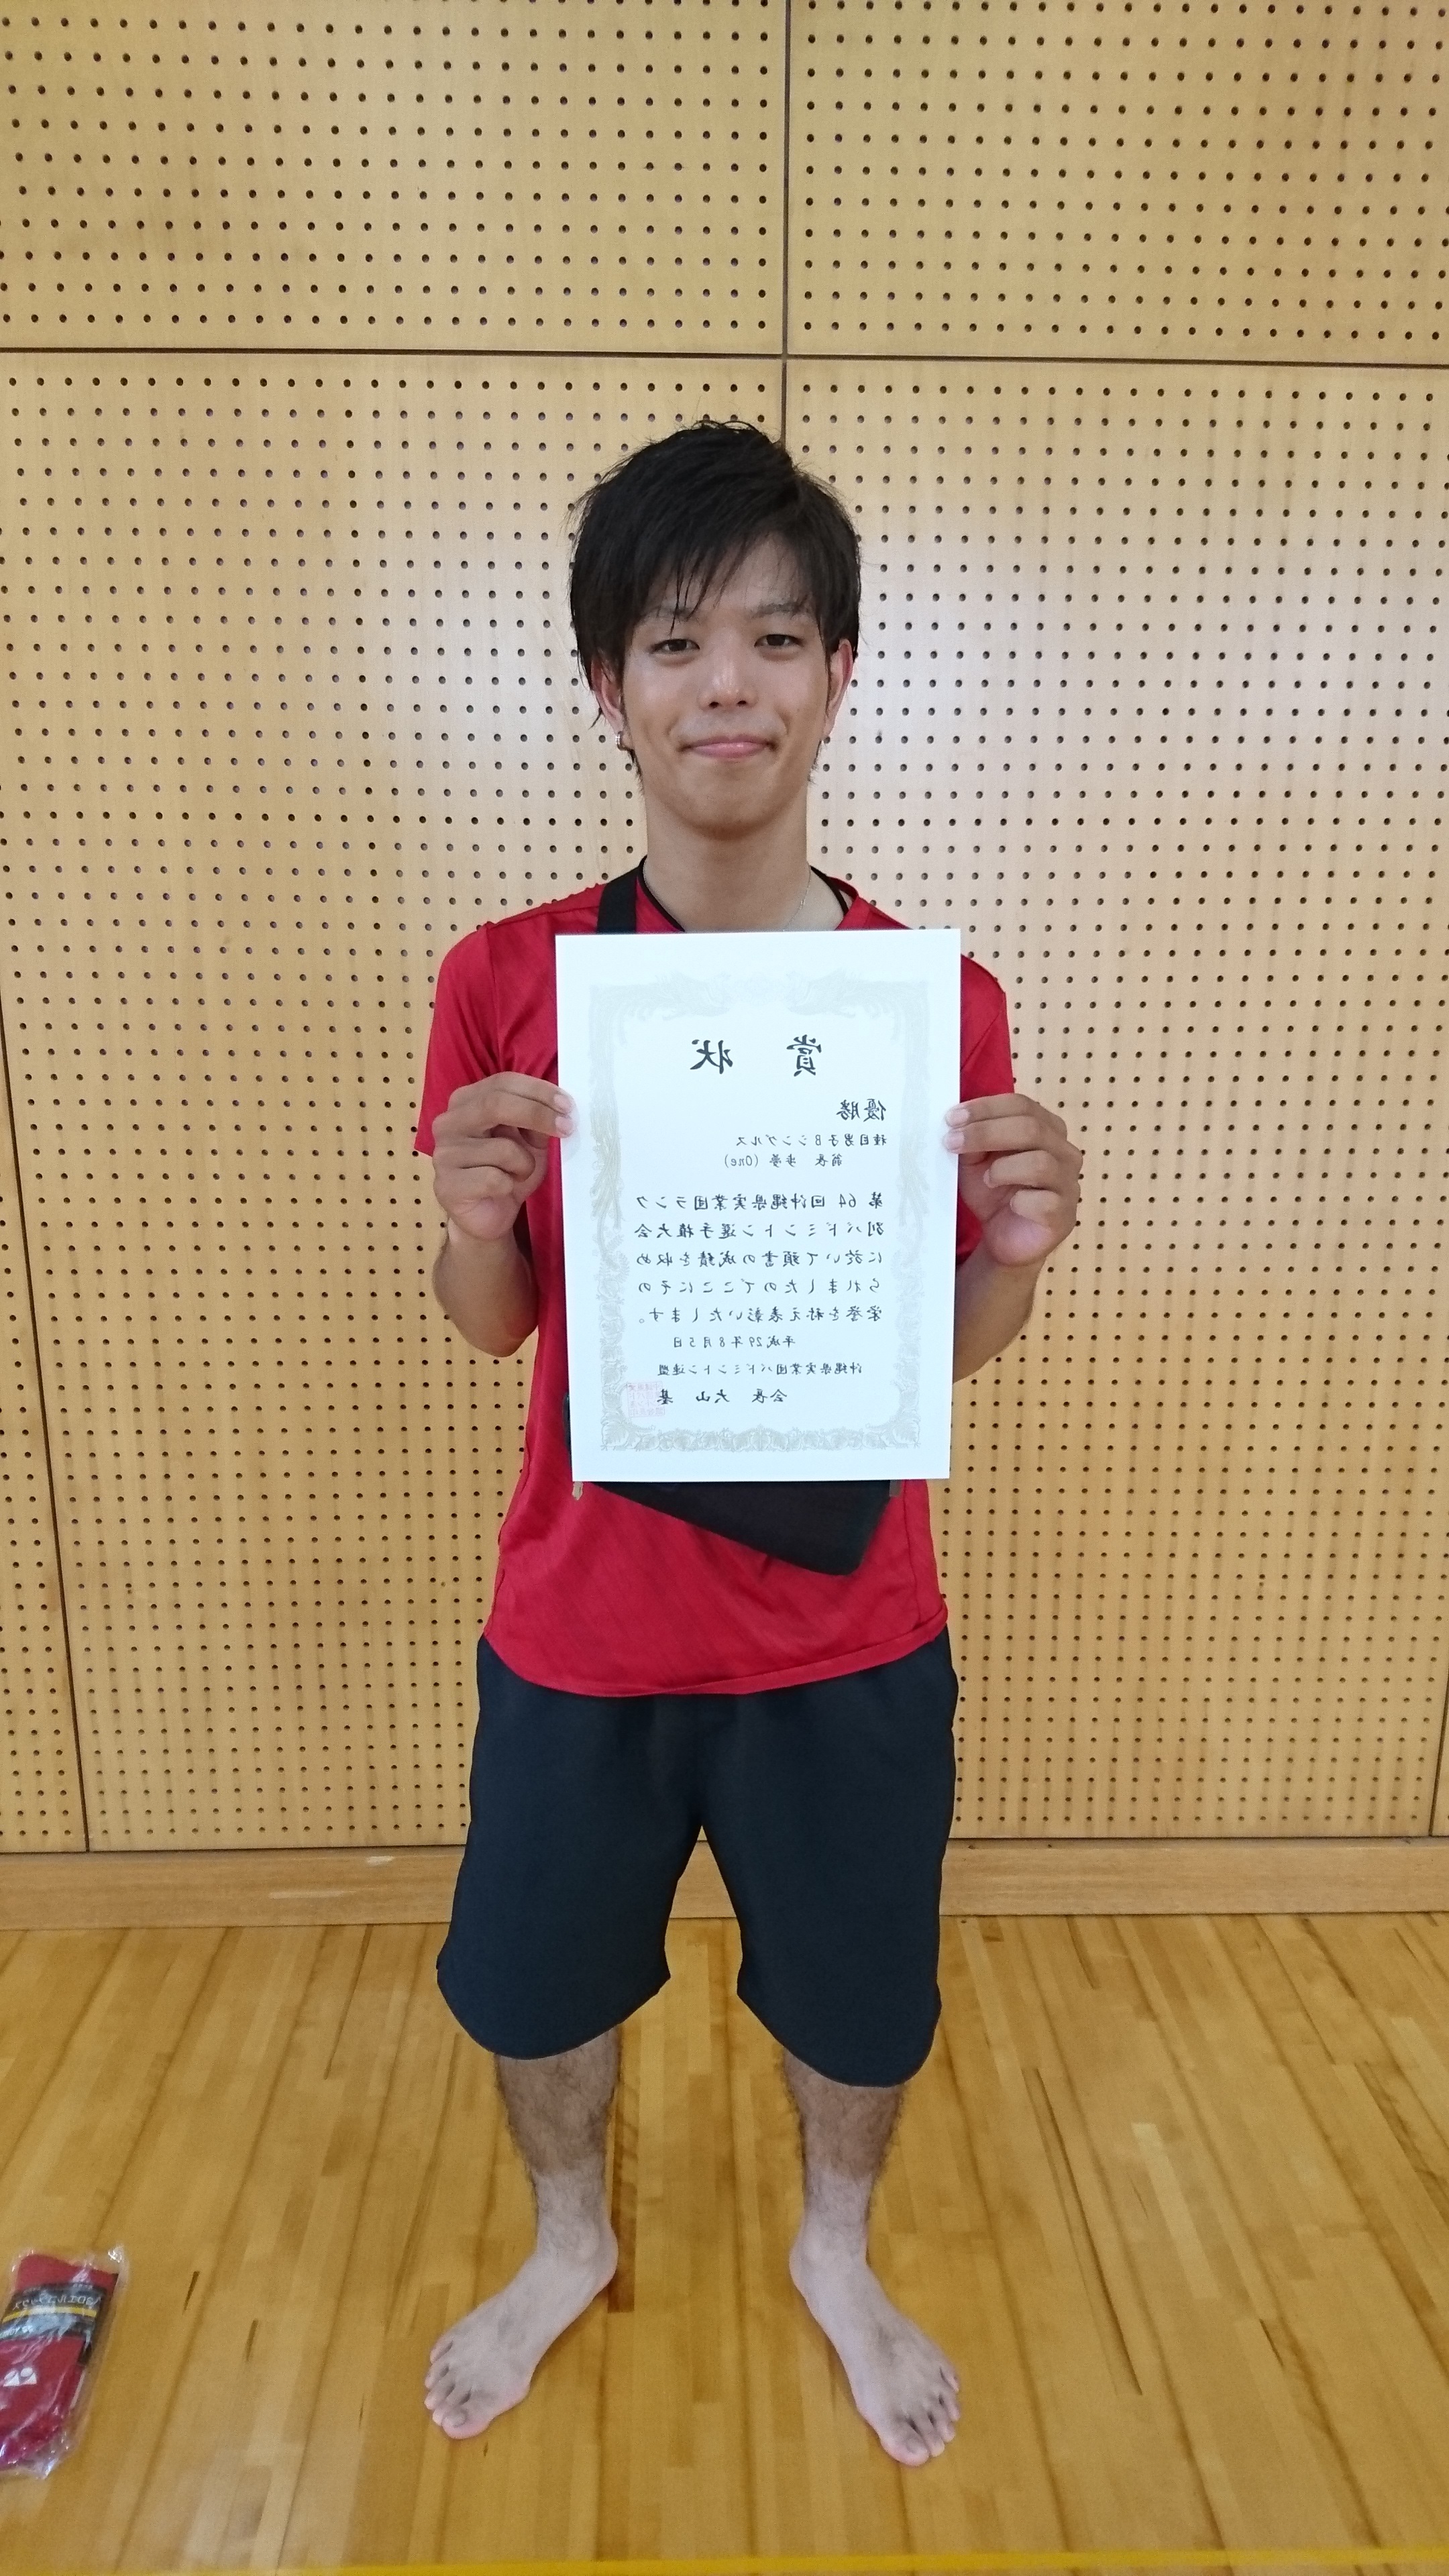 賞 状
優勝
種目男子Bシングルス
翁長 歩夢 (One)
第 64 回沖縄県実業団ランク
別バドミントン選手権大会
に於いて頭書の成績を収め
られましたのでここにその
栄誉を称え表彰いたします。
平成29年8月5日
沖縄県実業団バドミントン連盟
会長 大山 基